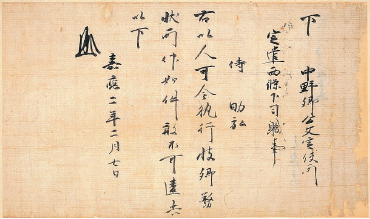 下 中野郷公文定使所
定遣西條下司職事
侍 助弘
右以人可令執行彼郷務
状所仰如件敢不可違失
以下
嘉應二年二月七日